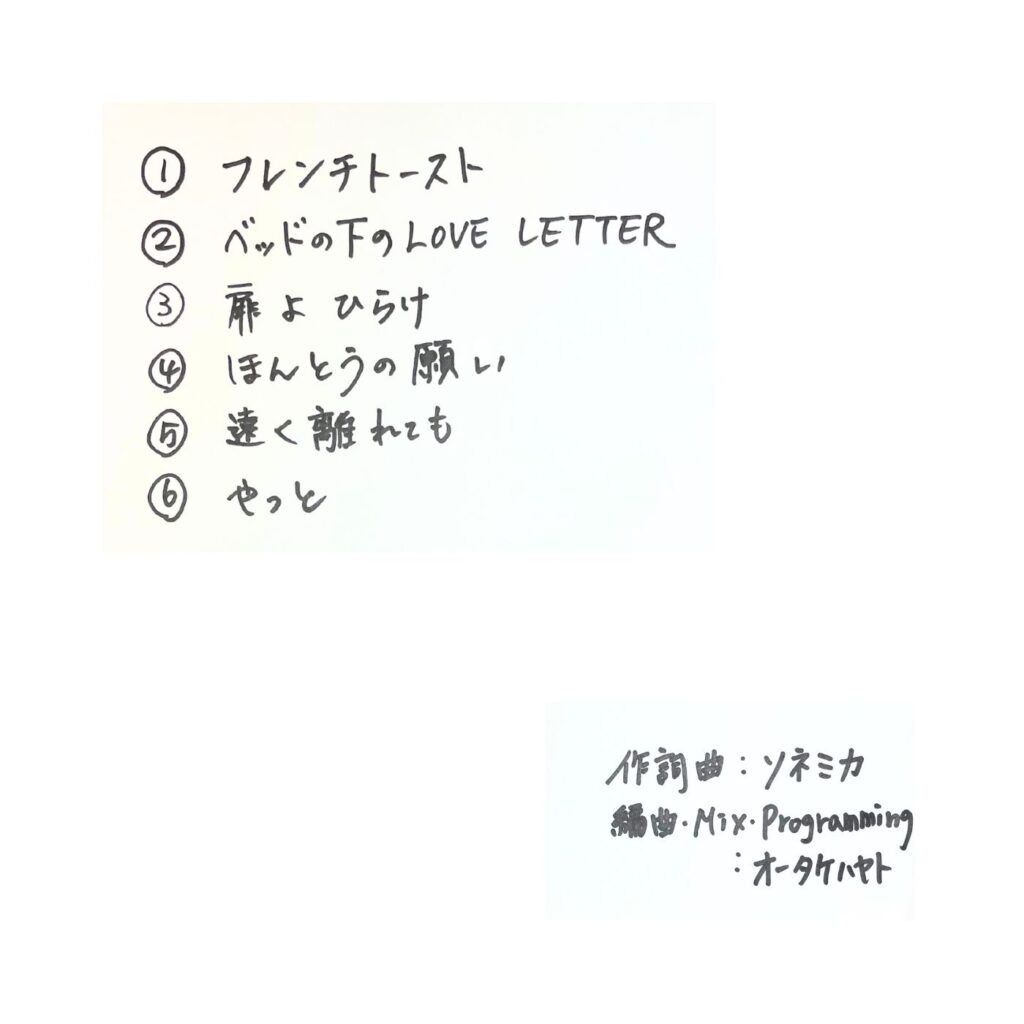 ① フレンチトースト
② ベッドの下のLOVE LETTER
③ 扉よ ひらけ
④ ほんとうの願い
⑤ 遠く離れても
⑥ やっと
作詞曲：ソネミカ
編曲・Mix・Programming
：オータケハヤト